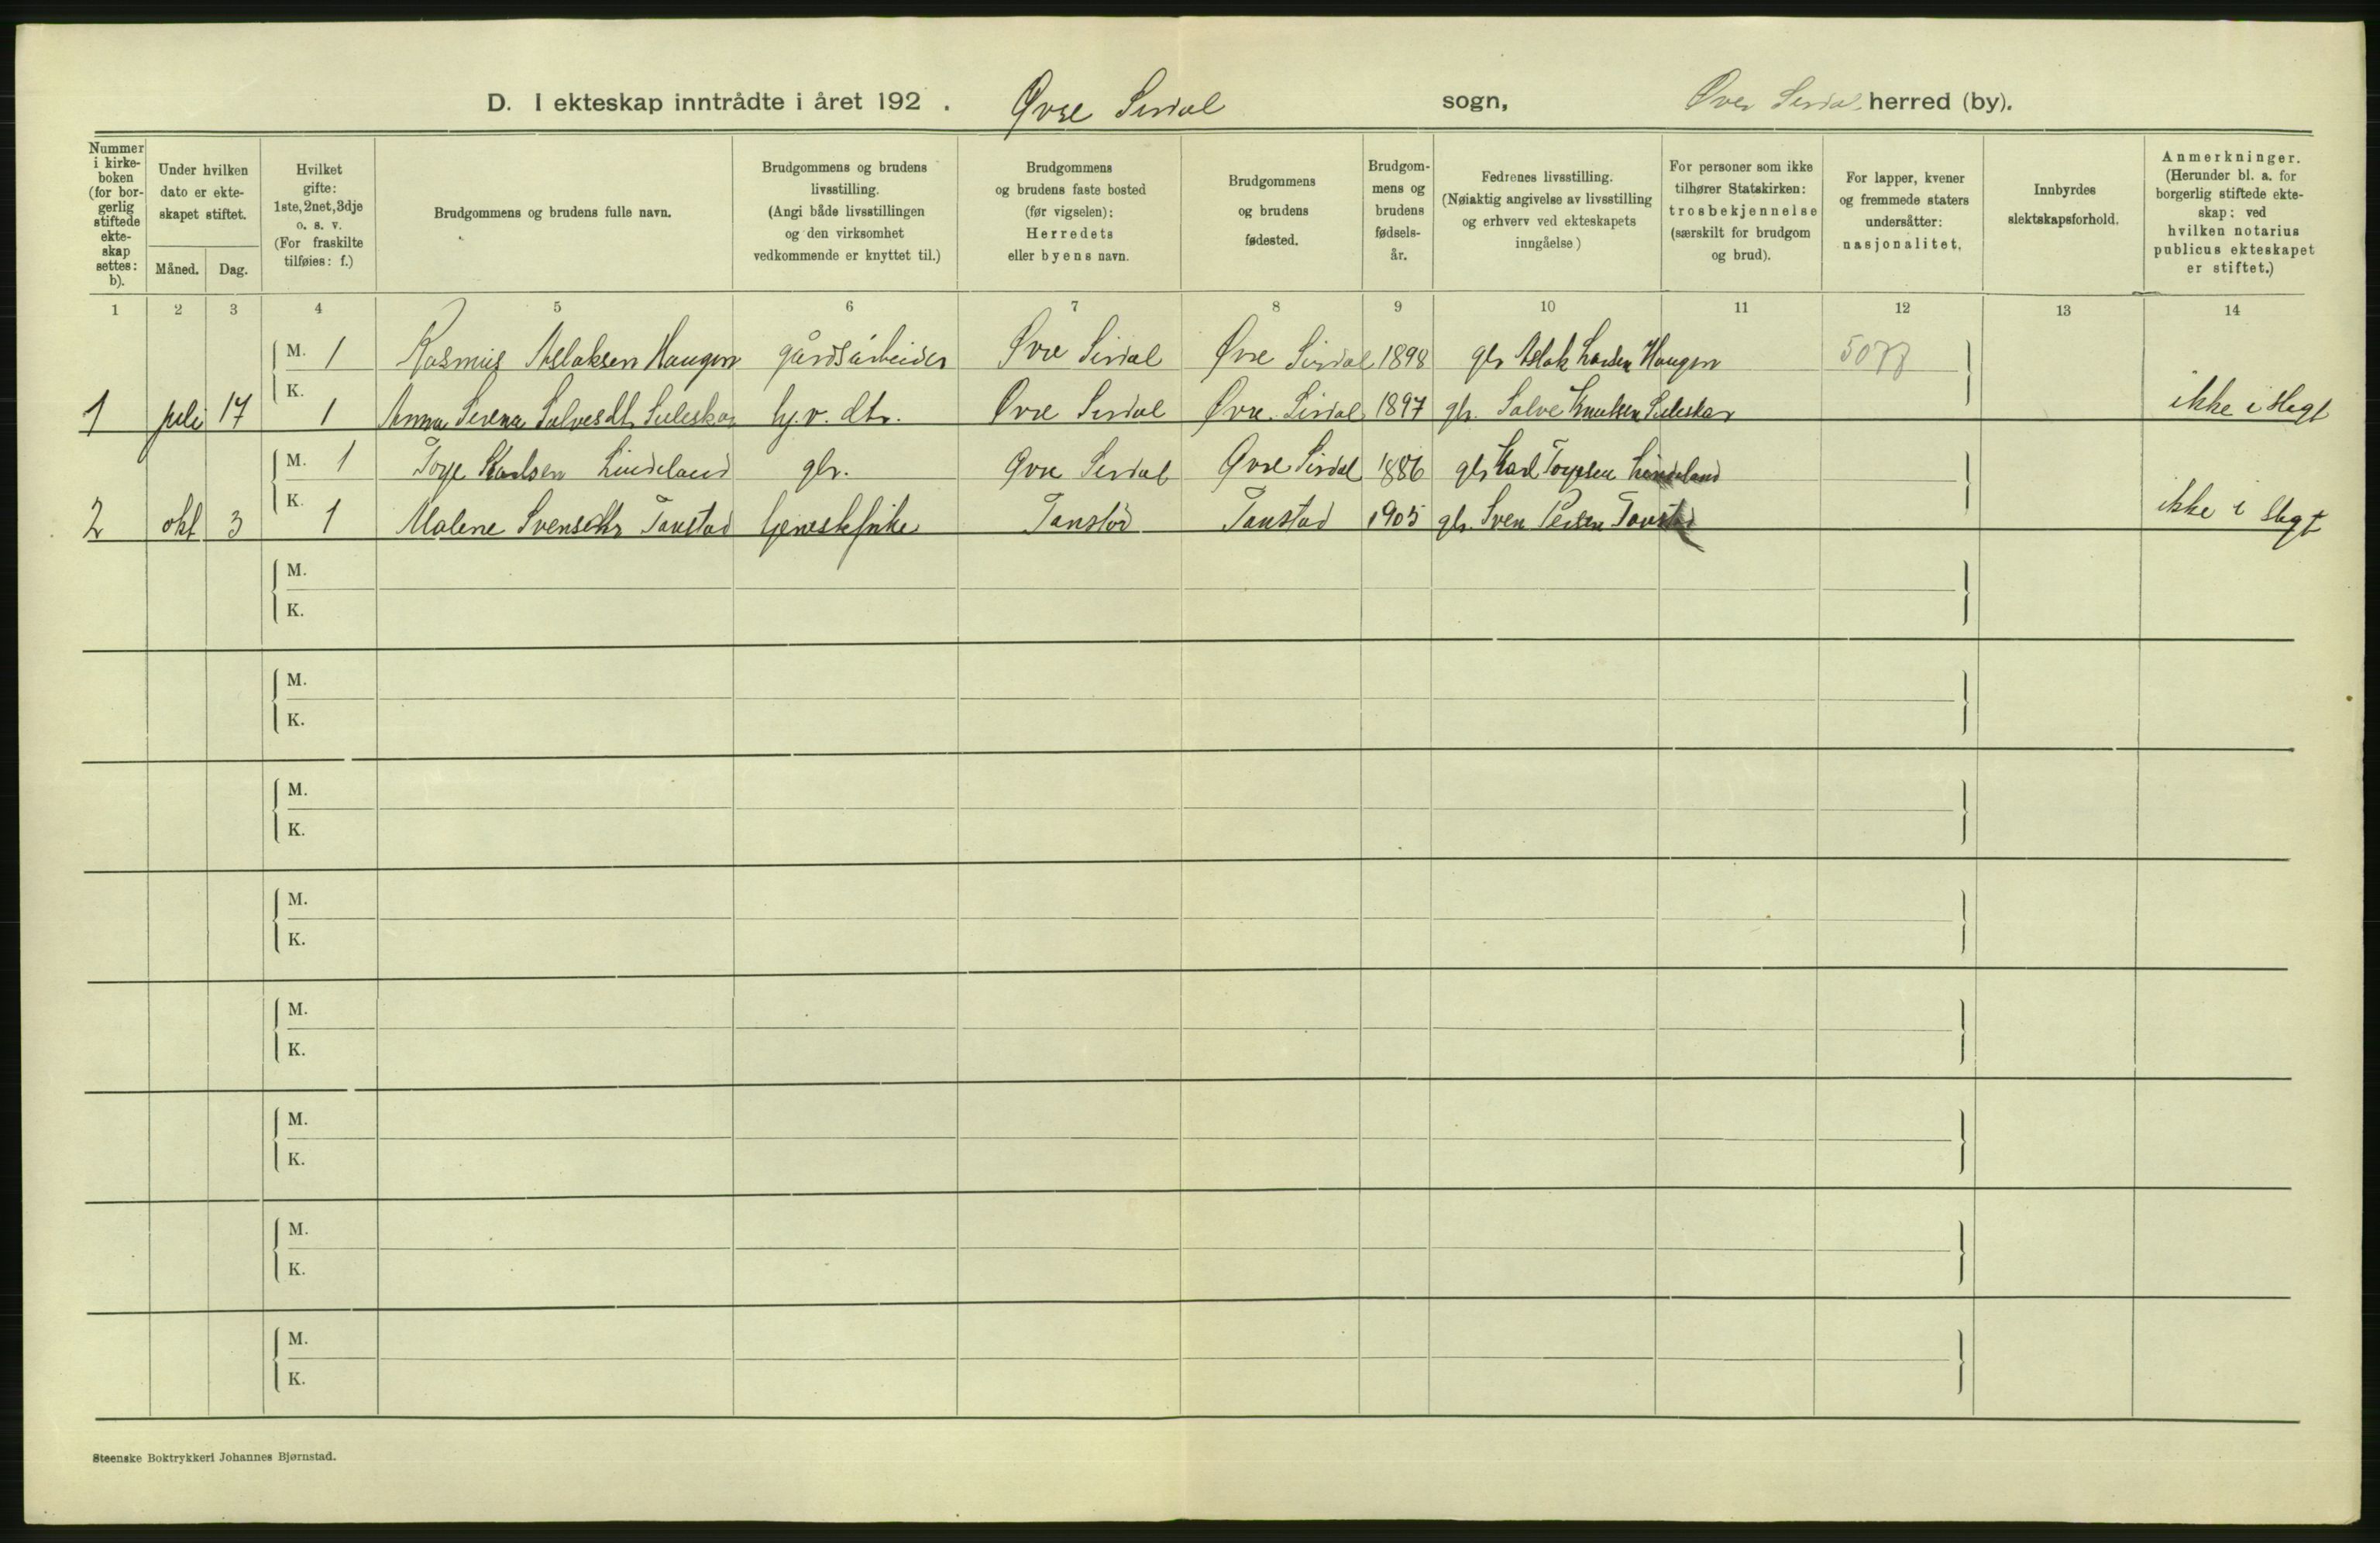 D. I ekteskap inntrådte i året 192 . Øvre Sirdal sogn, Øvre Sirdal herred (by).
Nummer i kirkeboken (for borgerlig stiftede ekteskap settes: b).
Under hvilken dato er ekteskapet stiftet.
Måned. Dag.
Hvilket gifte: 1ste, 2net, 3dje o. s. v. (For fraskilte tilføies: f.)
Brudgommens og brudens fulle navn.
Brudgommens og brudens livsstilling. (Angi både livsstillingen og den virksomhet vedkommende er knyttet til.)
Brudgommens og brudens faste bosted (før vigselen): Herredets eller byens navn.
Brudgommens og brudens fødested.
Brudgommens og brudens fødselsår.
Fedrenes livsstilling. (Nøiaktig angivelse av livsstilling og erhverv ved ekteskapets inngåelse)
For personer som ikke tilhører Statskirken: trosbekjennelse (særskilt for brudgom og brud).
For lapper, kvener og fremmede staters undersåtter: nasjonalitet.
Innbyrdes slektskapsforhold.
Anmerkninger. (Herunder bl. a. for borgerlig stiftede ekteskap: ved hvilken notarius publicus ekteskapet er stiftet.)
1 2 3 4 5 6 7 8 9 10 11 12 13 14
M. 1 Rasmus Aslaksen Haugen gårdsarbeider Øvre Sirdal Øvre Sirdal 1898 gbr Aslak Larsen Haugen
1 juli 17 K. 1 Anna Serena Salvesdt. Suleskar hj.v. dtr. Øvre Sirdal Øvre Sirdal 1897 gbr. Salve Knutsen Suleskar ikke i slegt
M. 1 Torje Karlsen Lindeland gbr. Øvre Sirdal Øvre Sirdal 1886 gbr Karl Torjesen Lindeland
2 okt 3 K. 1 Malene Svensdtr Tonstad Tonstad Tonstad 1905 gbr. Sven Tonstad ikke i slegt
M.
K.
M.
K.
M.
K.
M.
K.
M.
K.
M.
K.
M.
K.
M.
K.
Steenske Boktrykkeri Johannes Bjørnstad.